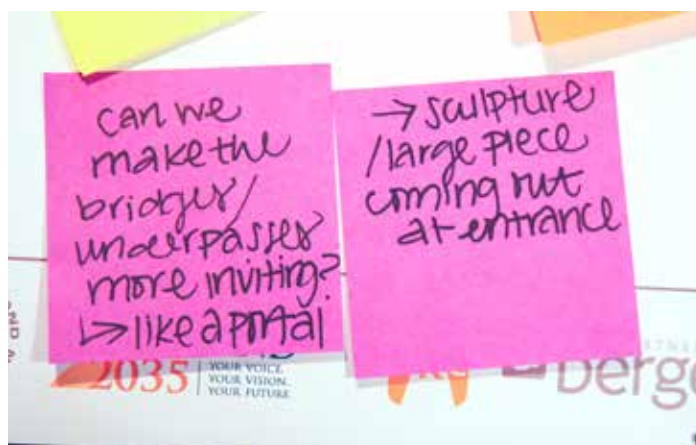 can we
make the
bridges/
underpasses
more inviting?
↳ like a portal
→ sculpture
/large piece
coming out
at entrance
2035
YOUR VOICE.
YOUR VISION.
YOUR FUTURE